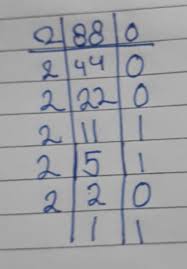 2 88 0
2 44 0
2 22 0
2 11 1
2 5 1
2 2 0
1 1